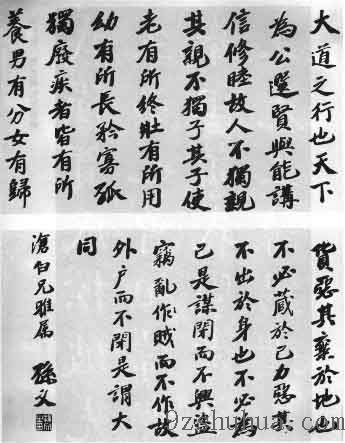 大道之行也天下
為公選賢與能講
信修睦故人不獨親
其親不獨子其子使
老有所終壯有所用
幼有所長矜寡孤
獨廢疾者皆有所
養男有分女有歸
貨惡其棄於地也
不必藏於己力惡其
不出於身也不必為
己是謀閉而不興盜
竊亂作賊而不作故
外戶而不閉是謂大
同
滄白兄雅屬 孫文